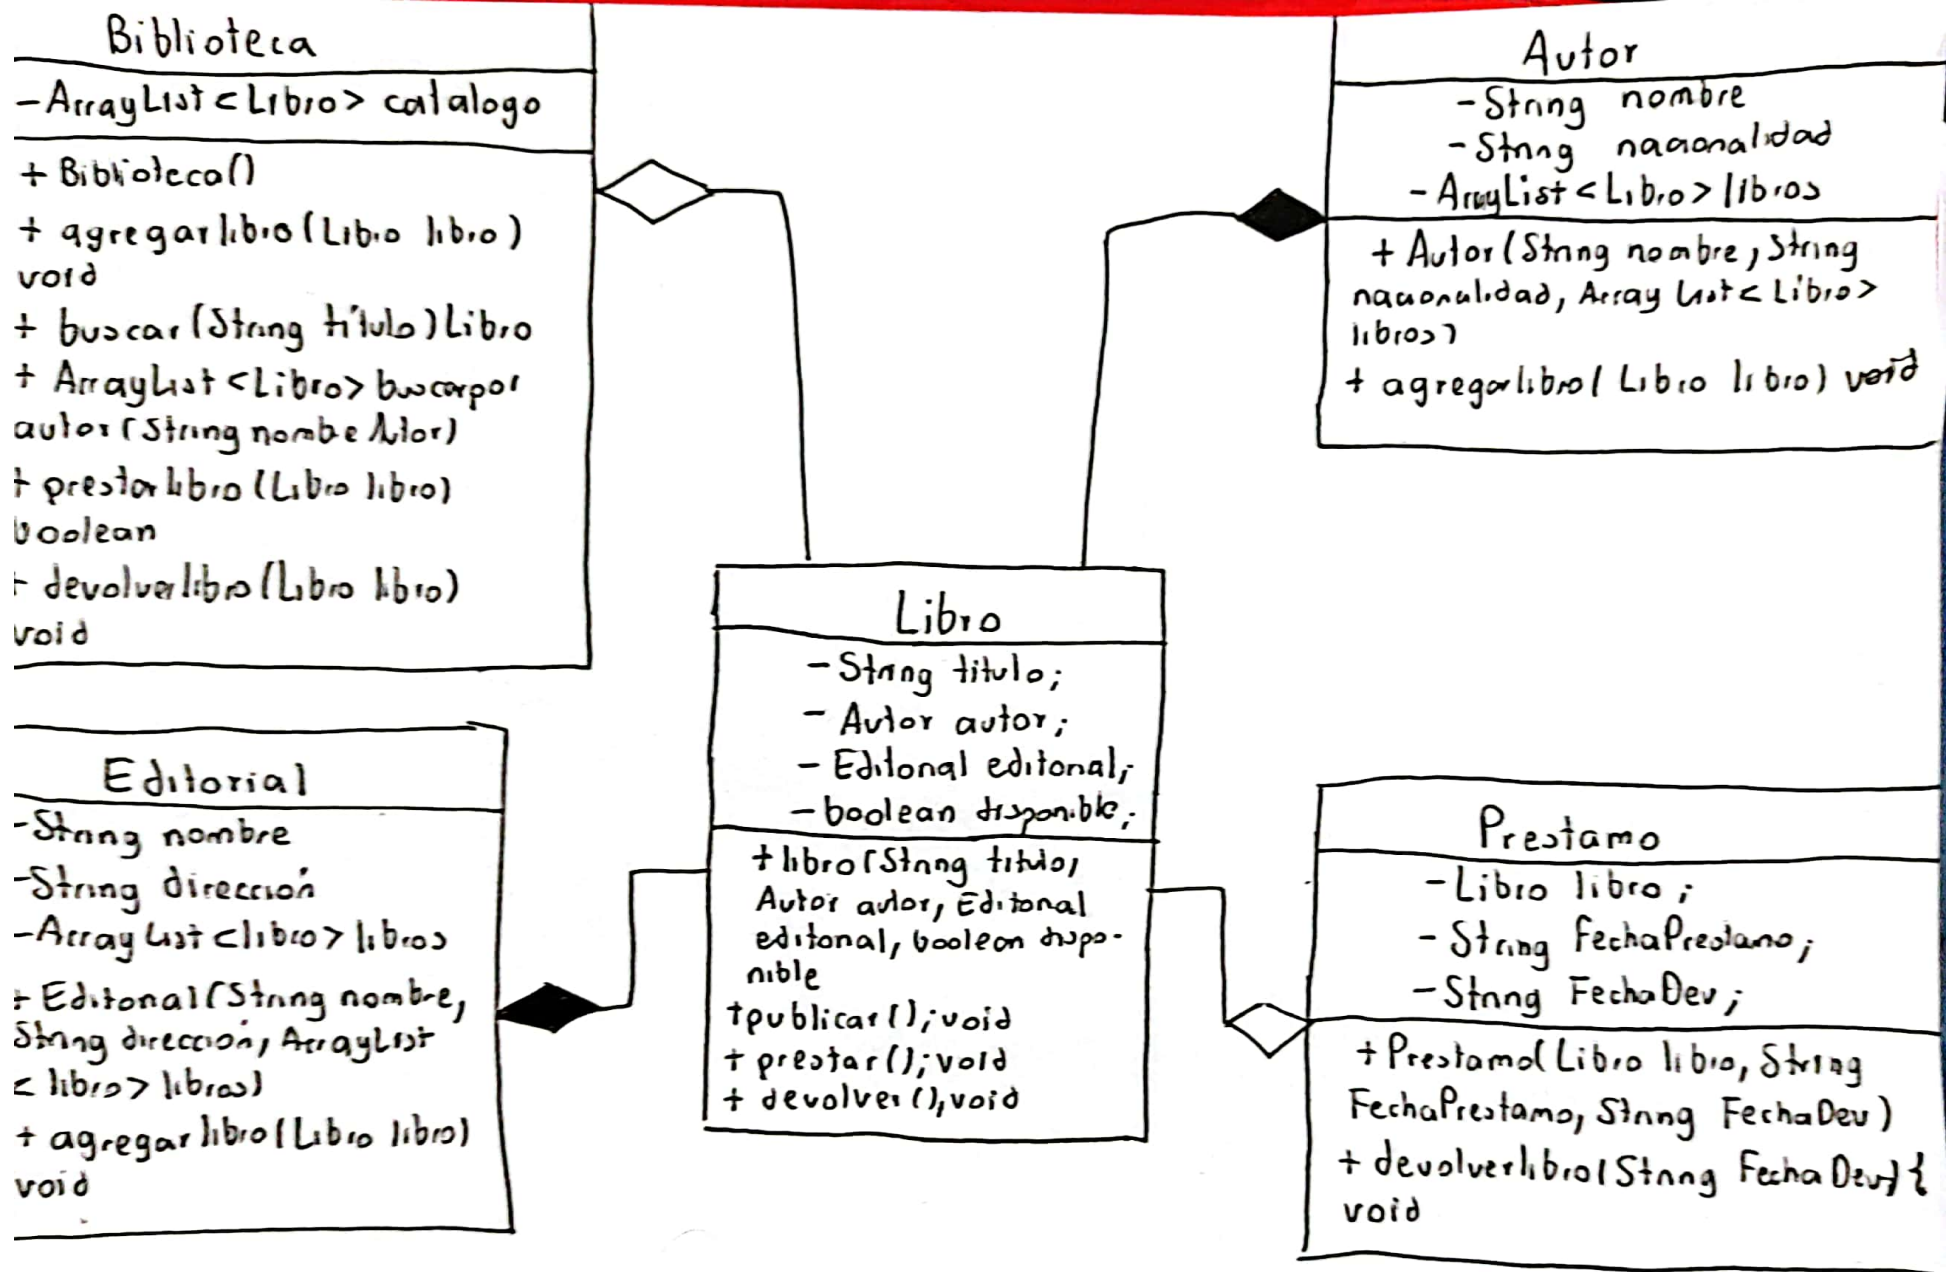 Biblioteca
-ArrayList<Libro> catalogo
+ Biblioteca()
+ agregarlibro(Libro libro)
void
+ buscar(String título)Libro
+ ArrayList<Libro>buscarpor
autor(String nombeAutor)
+ prestarlibro(Libro libro)
boolean
+ devolverlibro(Libro libro)
void
Autor
-String nombre
-String nacionalidad
-ArrayList<Libro>libros
+ Autor(String nombre, String
nacionalidad, ArrayList<Libro>
libros)
+ agregarlibro(Libro libro) void
Libro
-String titulo;
- Autor autor;
- Editorial editorial;
-boolean disponible;
+libro(String titulo,
Autor autor, Editorial
editorial, boolean dispo-
nible
+publicar();void
+ prestar();void
+ devolver(),void
Editorial
-String nombre
-String dirección
-ArrayList<libro>libros
+ Editorial(String nombre,
String dirección, ArrayList
<libro>libros)
+ agregarlibro(Libro libro)
void
Prestamo
-Libro libro;
- String FechaPrestamo;
-String FechaDev;
+Prestamo(Libro libro, String
FechaPrestamo, String FechaDev)
+ devolverlibro(String FechaDev){
void